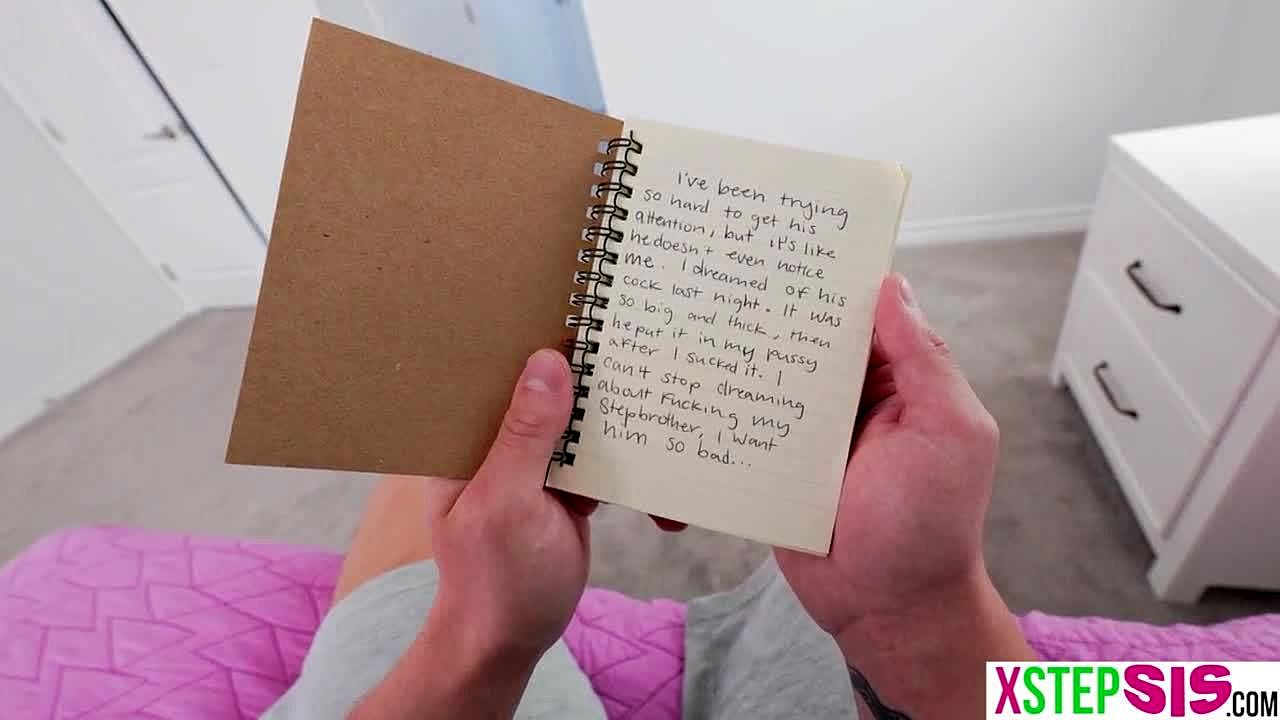 I've been trying
so hard to get his
attention, but it's like
he doesn't even notice
me. I dreamed of his
cock last night. It was
so big and thick, then
he put it in my pussy
after I sucked it. I
can't stop dreaming
about Fucking my
Stepbrother, I want
him so bad...
XSTEPSIS.COM